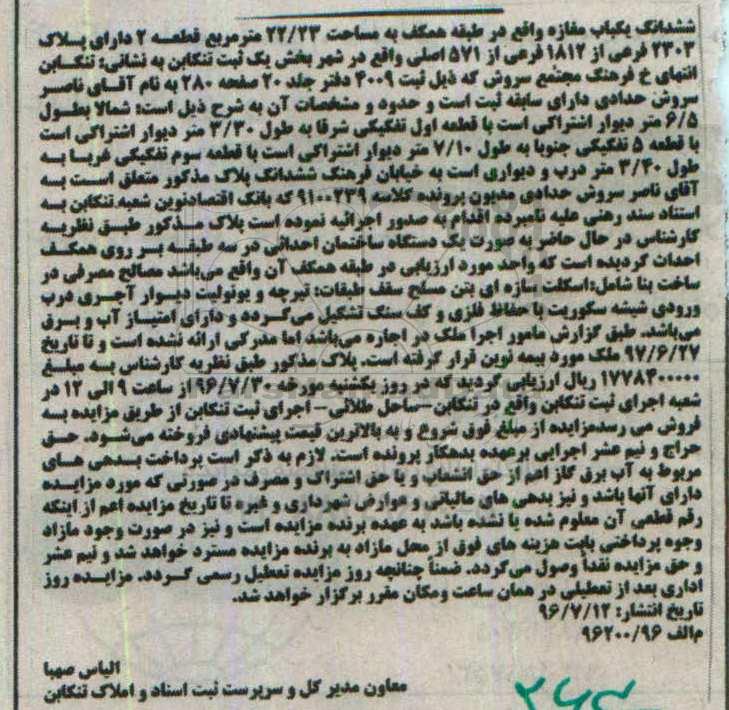 ششدانگ یکباب مغازه واقع در طبقه همکف به مساحت ۲۲/۲۳ مترمربع قطعه ۲ دارای پلاک
۲۳۰۳ فرعی از ۱۸۱۲ فرعی از ۵۷۱ اصلی واقع در شهر بخش یک ثبت تنکابن به نشانی: تنکابن
انتهای خ فرهنگ مجتمع سروش که ذیل ثبت ۴۰۰۹ دفتر جلد ۲۰ صفحه ۲۸۰ به نام آقای ناصر
سروش حدادی دارای سابقه ثبت است و حدود و مشخصات آن به شرح ذیل است: شمالا بطول
۶/۵ متر دیوار اشتراکی است با قطعه اول تفکیکی شرقا به طول ۳/۳۰ متر دیوار اشتراکی است
با قطعه ۵ تفکیکی جنوبا به طول ۷/۱۰ متر دیوار اشتراکی است با قطعه سوم تفکیکی غربا به
طول ۳/۴۰ متر درب و دیواری است به خیابان فرهنگ ششدانگ پلاک مذکور متعلق است به
آقای ناصر سروش حدادی مدیون پرونده کلاسه ۹۱۰۰۲۳۹ که بانک اقتصادنوین شعبه تنکابن به
استناد سند رهنی علیه نامبرده اقدام به صدور اجرائیه نموده است پلاک مذکور طبق نظریه
کارشناس در حال حاضر به صورت یک دستگاه ساختمان احداثی در سه طبقه بر روی همکف
احداث گردیده است که واحد مورد ارزیابی در طبقه همکف آن واقع می‌باشد مصالح مصرفی در
ساخت بنا شامل: اسکلت سازه ای بتن مسلح سقف طبقات: تیرچه و یونولیت دیوار آجری درب
ورودی شیشه سکوریت با حفاظ فلزی و کف سنگ تشکیل می‌گردد و دارای امتیاز آب و برق
می‌باشد. طبق گزارش مامور اجرا ملک در اجاره می‌باشد اما مدرکی ارائه نشده است و تا تاریخ
۹۷/۶/۲۷ ملک مورد بیمه نوین قرار گرفته است. پلاک مذکور طبق نظریه کارشناس به مبلغ
۱۷۷۸۴۰۰۰۰۰ ریال ارزیابی گردید که در روز یکشنبه مورخه ۹۶/۷/۳۰ از ساعت ۹ الی ۱۲ در
شعبه اجرای ثبت تنکابن واقع در تنکابن-ساحل طلائی- اجرای ثبت تنکابن از طریق مزایده به
فروش می رسد مزایده از مبلغ فوق شروع و به بالاترین قیمت پیشنهادی فروخته می‌شود. حق
حراج و نیم عشر اجرایی برعهده بدهکار پرونده است. لازم به ذکر است پرداخت بدهی های
مربوط به آب برق گاز اعم از حق انشعاب و یا حق اشتراک و مصرف در صورتی که مورد مزایده
دارای آنها باشد و نیز بدهی های مالیاتی و عوارض شهرداری و غیره تا تاریخ مزایده اعم از اینکه
رقم قطعی آن معلوم شده یا نشده باشد به عهده برنده مزایده است و نیز در صورت وجود مازاد
وجوه پرداختی بابت هزینه های فوق از محل مازاد به برنده مزایده مسترد خواهد شد و نیم عشر
و حق مزایده نقداً وصول می‌گردد. ضمناً چنانچه روز مزایده تعطیل رسمی گردد. مزایده روز
اداری بعد از تعطیلی در همان ساعت و مکان مقرر برگزار خواهد شد.
تاریخ انتشار: ۹۶/۷/۱۲
م‌الف ۹۶۲۰۰/۹۶
الیاس صهبا
معاون مدیر کل و سرپرست ثبت اسناد و املاک تنکابن